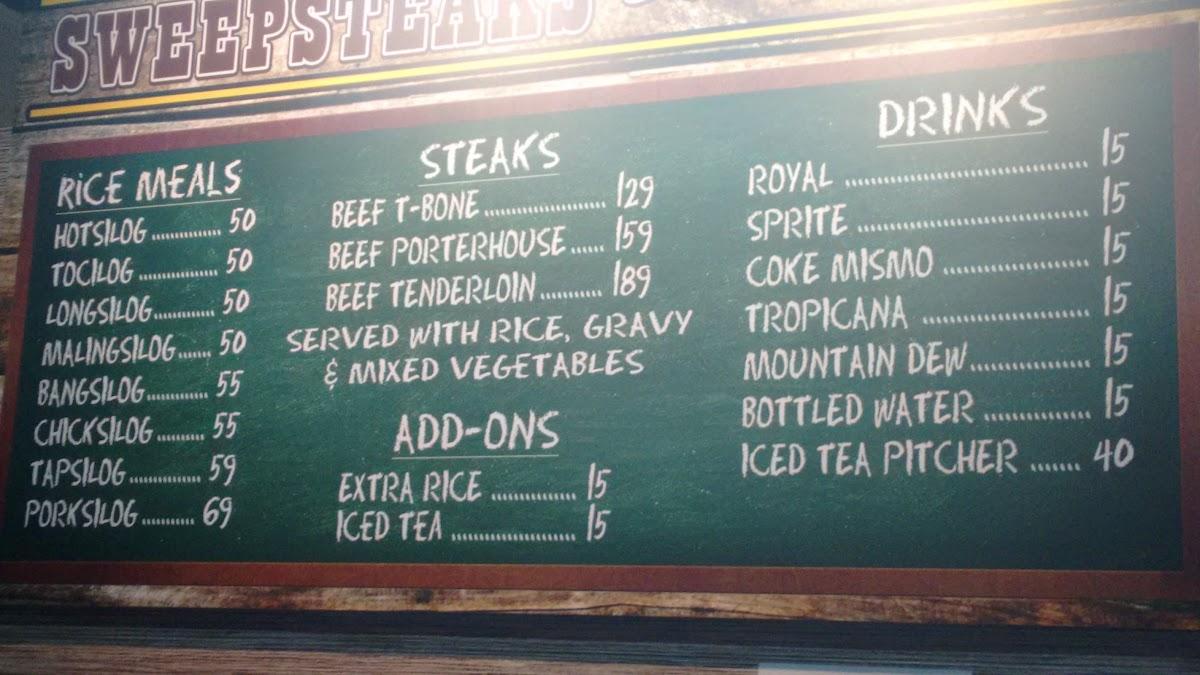 SWEEPSTEAKS
RICE MEALS
HOTSILOG ............ 50
TOCILOG ............ 50
LONGSILOG ............ 50
MALINGSILOG ...... 50
BANGSILOG ............ 55
CHICKSILOG .......... 55
TAPSILOG ............ 59
PORKSILOG ........... 69
STEAKS
BEEF T-BONE ............ 129
BEEF PORTERHOUSE ...... 159
BEEF TENDERLOIN .......... 189
SERVED WITH RICE, GRAVY
& MIXED VEGETABLES
ADD-ONS
EXTRA RICE ............ 15
ICED TEA ............ 15
DRINKS
ROYAL ............ 15
SPRITE ............ 15
COKE MISMO ............ 15
TROPICANA ............ 15
MOUNTAIN DEW ............ 15
BOTTLED WATER ............ 15
ICED TEA PITCHER ....... 40